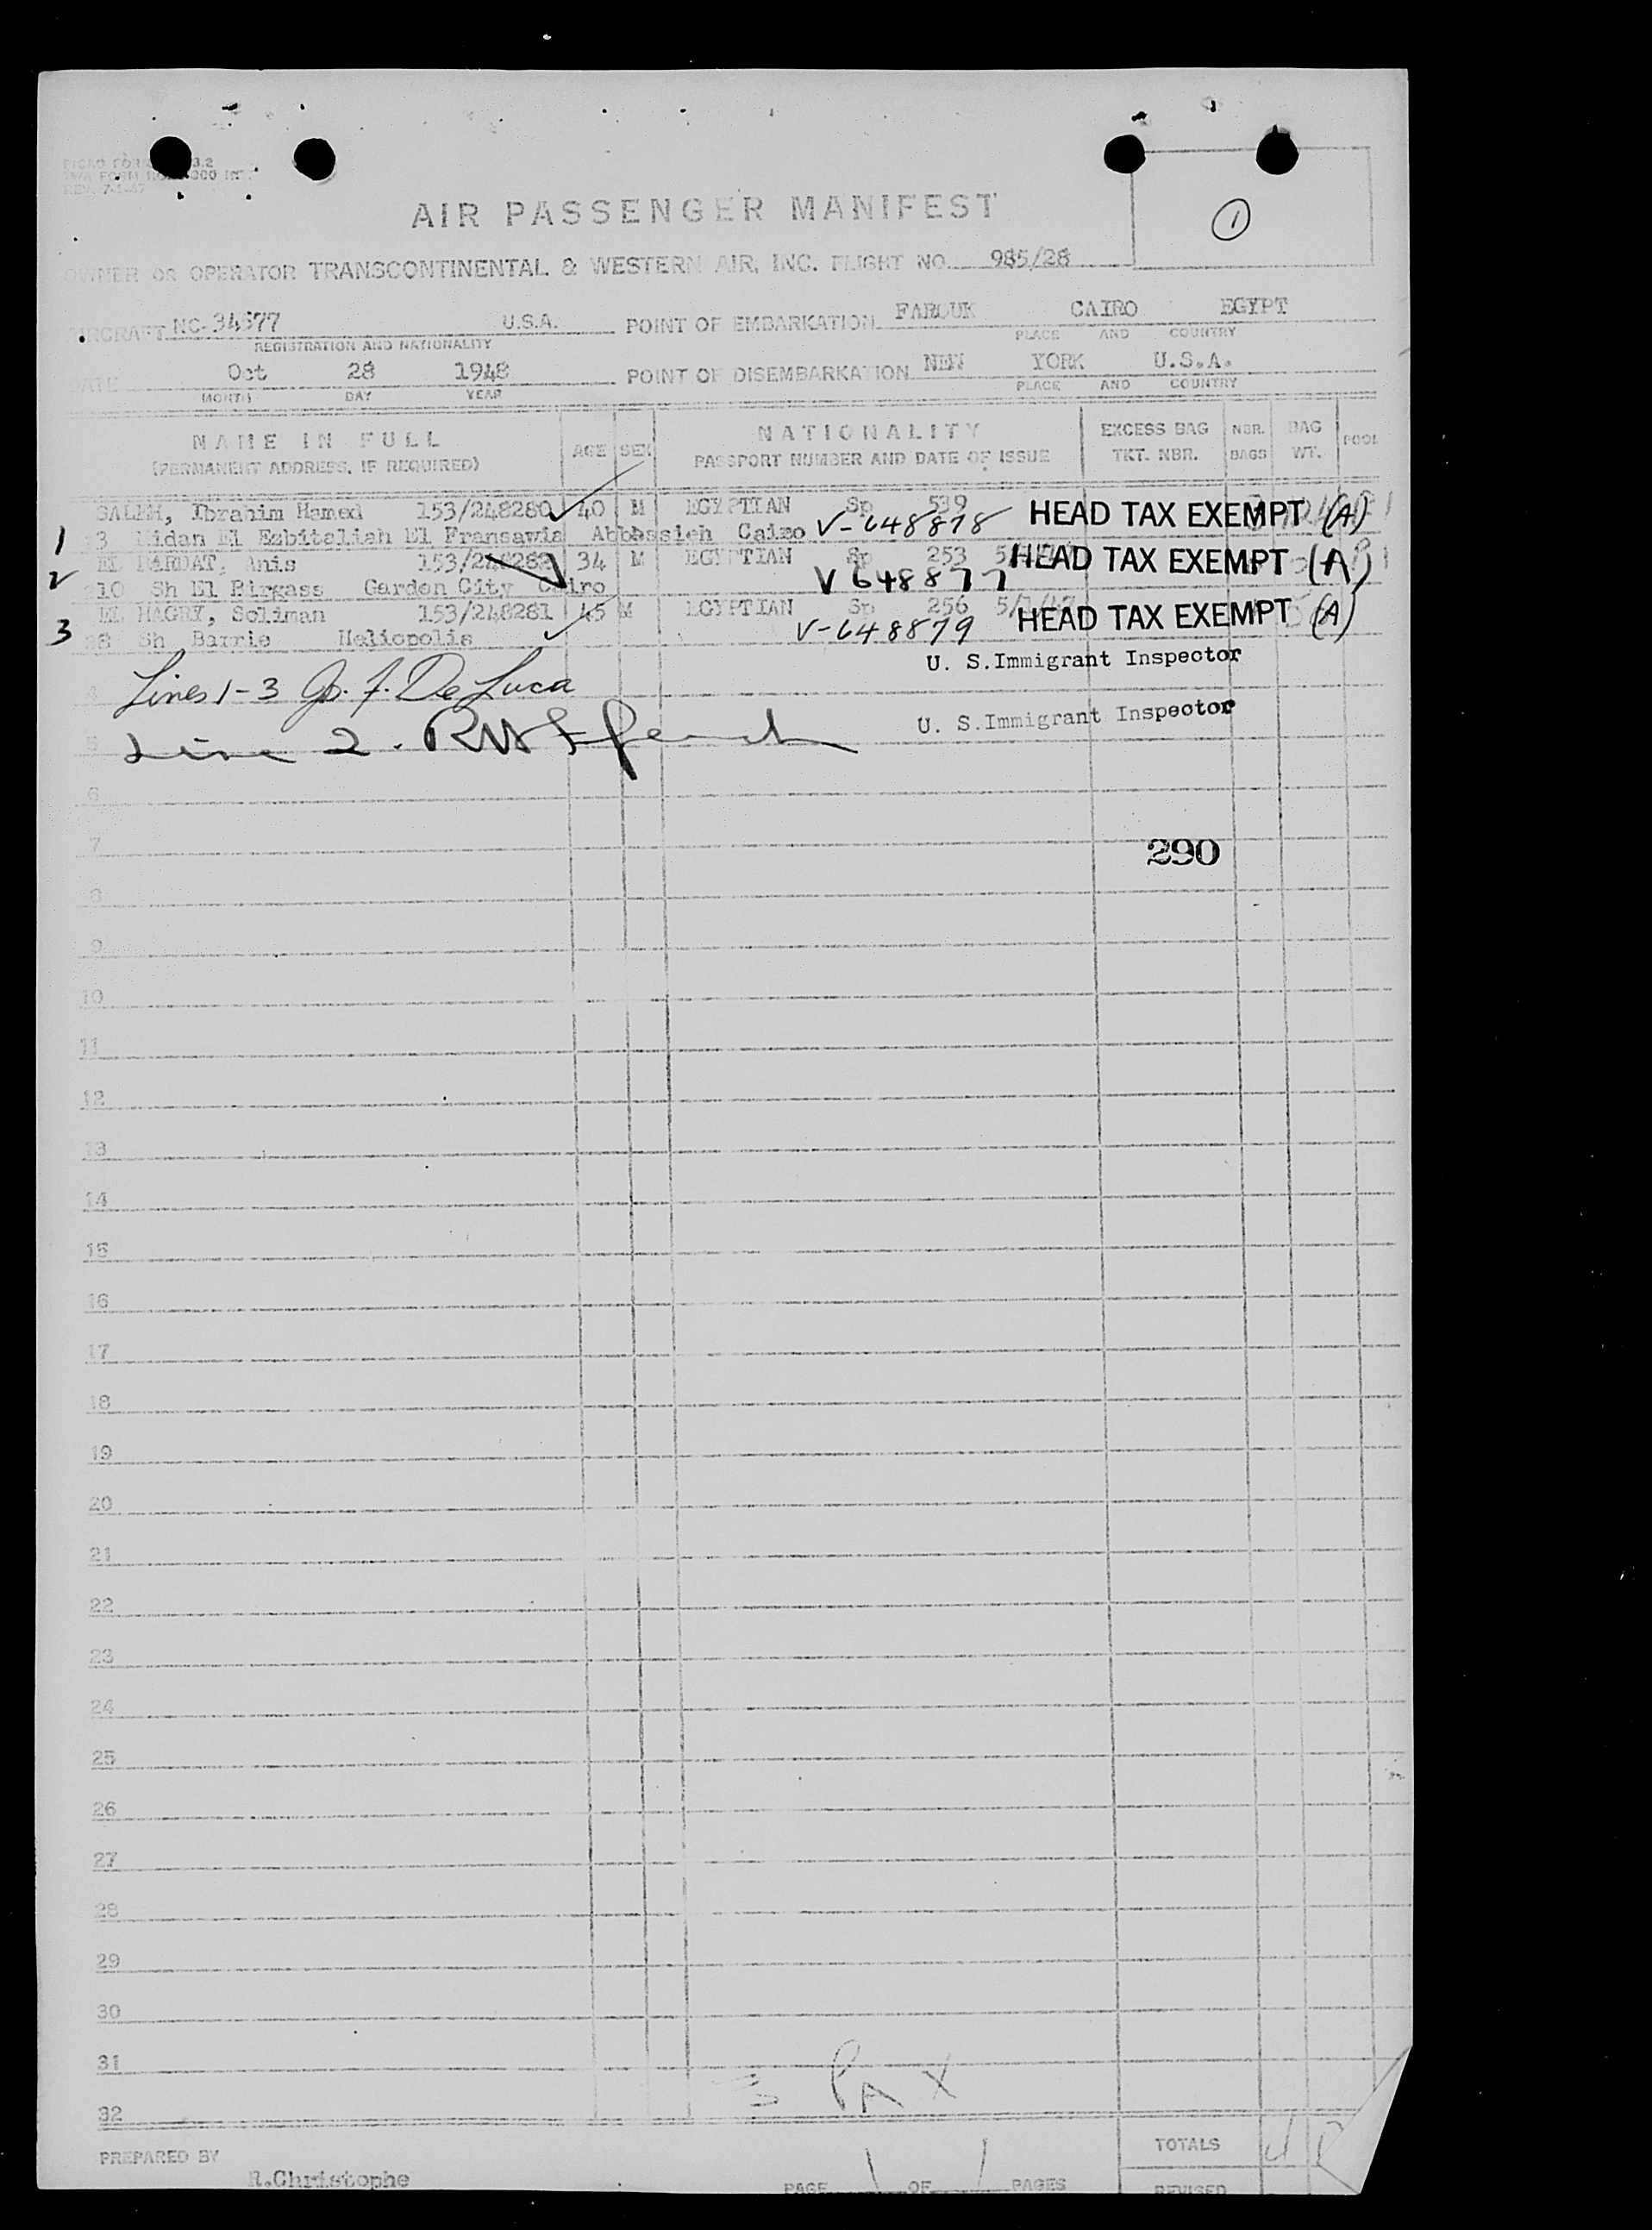 REV. 7-1-47
1
AIR PASSENGER MANIFEST
OWNER OR OPERATOR TRANSCONTINENTAL & WESTERN AIR, INC. FLIGHT NO. 985/28
AIRCRAFT NC-34577 U.S.A. POINT OF EMBARKATION FAROUK CAIRO EGYPT
REGISTRATION AND NATIONALITY PLACE AND COUNTRY
DATE Oct 28 1948 POINT OF DISEMBARKATION NEW YORK U.S.A.
MONTH DAY YEAR PLACE AND COUNTRY
NAME IN FULL AGE SEX NATIONALITY EXCESS BAG NBR. BAG POOL
(PERMANENT ADDRESS, IF REQUIRED) PASSPORT NUMBER AND DATE OF ISSUE TKT. NBR. BAGS WT.
SALEH, Ibrahim Hamed 153/248280 40 M EGYPTIAN Sp 539 HEAD TAX EXEMPT (A)
1 3 Midan El Ezbitaliah El Fransawia Abbassieh Cairo V-648878
Anis 153/248282 34 M EGYPTIAN Sp 253 HEAD TAX EXEMPT (A)
2 10 Sh El Birgass Garden City Cairo V 648877
EL HAGRY, Soliman 153/248281 45 M EGYPTIAN Sp 256 HEAD TAX EXEMPT (A)
3 Sh Barrie Heliopolis V-648879
U. S. Immigrant Inspector
4 Lines 1-3 Jos. F. De Luca
U. S. Immigrant Inspector
5 Line 2.
6
7 290
8
9
10
11
12
13
14
15
16
17
18
19
20
21
22
23
24
25
26
27
28
29
30
31
3 PAX
32
PREPARED BY TOTALS
R.Christophe PAGE 1 OF 1 PAGES REVISED